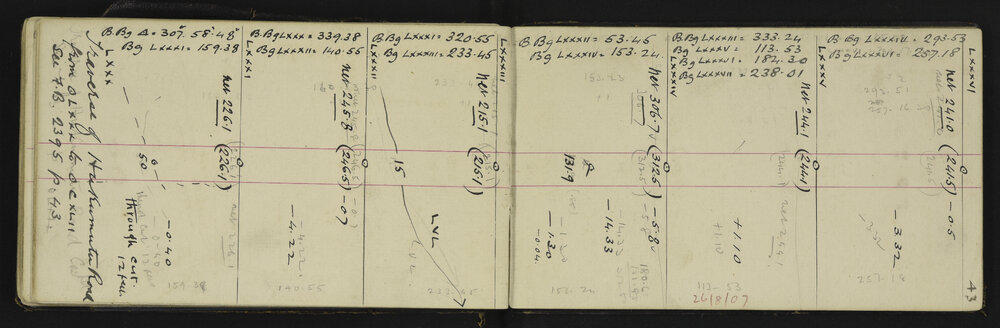 Traverse of Hakumutu Road
from O LXXX to O CXLIII
See F.B. 2395 p. 43.
B. Bg Δ = 307° 58' 48"
Bg LXXXI = 159.38
LXXX
net 226.1
(226.1)
50
-0.40
through cut
12 feet.
159 38
B. Bg LXXX = 339.38
Bg LXXXII = 140.55
LXXXI
net 245.8
(246.5) -0.7
-4.22
-4.22
140.55
B Bg LXXXI = 320.55
Bg LXXXIII = 233.45
LXXXII
net 215.1
(215.1)
15
LVL
LVL
233.45
LXXXIII
B Bg LXXXII = 53.45
Bg LXXXIV = 153.24
net 306.7
(312.5) -5.8
131.9
-14.33
-1.30
-0.04
153.24
LXXXIV
B Bg LXXXIII = 333.24
Bg LXXXV = 113.53
Bg LXXXVI = 184.30
Bg LXXXVII = 238.01
net 244.1
(244.1)
+1.10
+1.10
net 244.1
113-53
26/8/07
LXXXV
B Bg LXXXIV = 293.53
Bg LXXXVI = 257.18
net 241.0
(241.5) -0.5
-3.32
257.18
LXXXVI
43